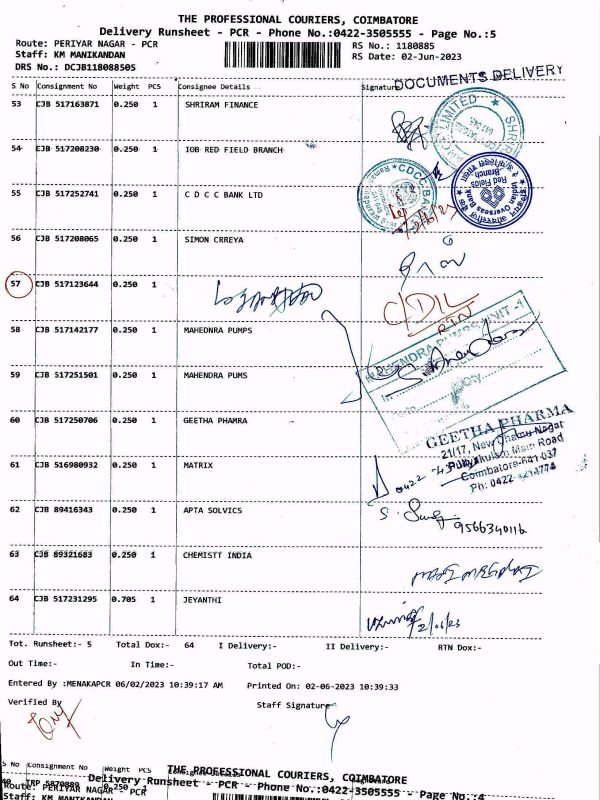 THE PROFESSIONAL COURIERS, COIMBATORE
Delivery Runsheet - PCR - Phone No.:0422-3505555 - Page No.:5
Route: PERIYAR NAGAR - PCR
RS No.: 1180885
Staff: KM MANIKANDAN
RS Date: 02-Jun-2023
DRS No.: DCJB118088505
DOCUMENTS DELIVERY
S No Consignment No Weight PCS Consignee Details Signature
53 CJB 517163871 0.250 1 SHRIRAM FINANCE
54 CJB 517208230 0.250 1 IOB RED FIELD BRANCH
55 CJB 517252741 0.250 1 C D C C BANK LTD
56 CJB 517208065 0.250 1 SIMON CRREYA
57 CJB 517123644 0.250 1
58 CJB 517142177 0.250 1 MAHEDNRA PUMPS
59 CJB 517251501 0.250 1 MAHENDRA PUMS
60 CJB 517250706 0.250 1 GEETHA PHAMRA
61 CJB 516980932 0.250 1 MATRIX
62 CJB 89416343 0.250 1 APTA SOLVICS
63 CJB 89321683 0.250 1 CHEMISTT INDIA
64 CJB 517231295 0.705 1 JEYANTHI
CDCC BANK
Indian Overseas Bank
Red Fields
Branch
RTN
GEETHA PHARMA
21/17, New
Main Road
Coimbatore-641 037
Ph: 0422-
0422
9566340116
2/06/23
Tot. Runsheet:- 5 Total Dox:- 64 I Delivery:- II Delivery:- RTN Dox:-
Out Time:- In Time:- Total POD:-
Entered By :MENAKAPCR 06/02/2023 10:39:17 AM Printed On: 02-06-2023 10:39:33
Verified By Staff Signature
S No Consignment No Weight PCS
THE PROFESSIONAL COURIERS, COIMBATORE
Delivery Runsheet - PCR - Phone No.:0422-3505555 - Page No.:4
Route: PERIYAR NAGAR - PCR
Staff: KM MANIKANDAN